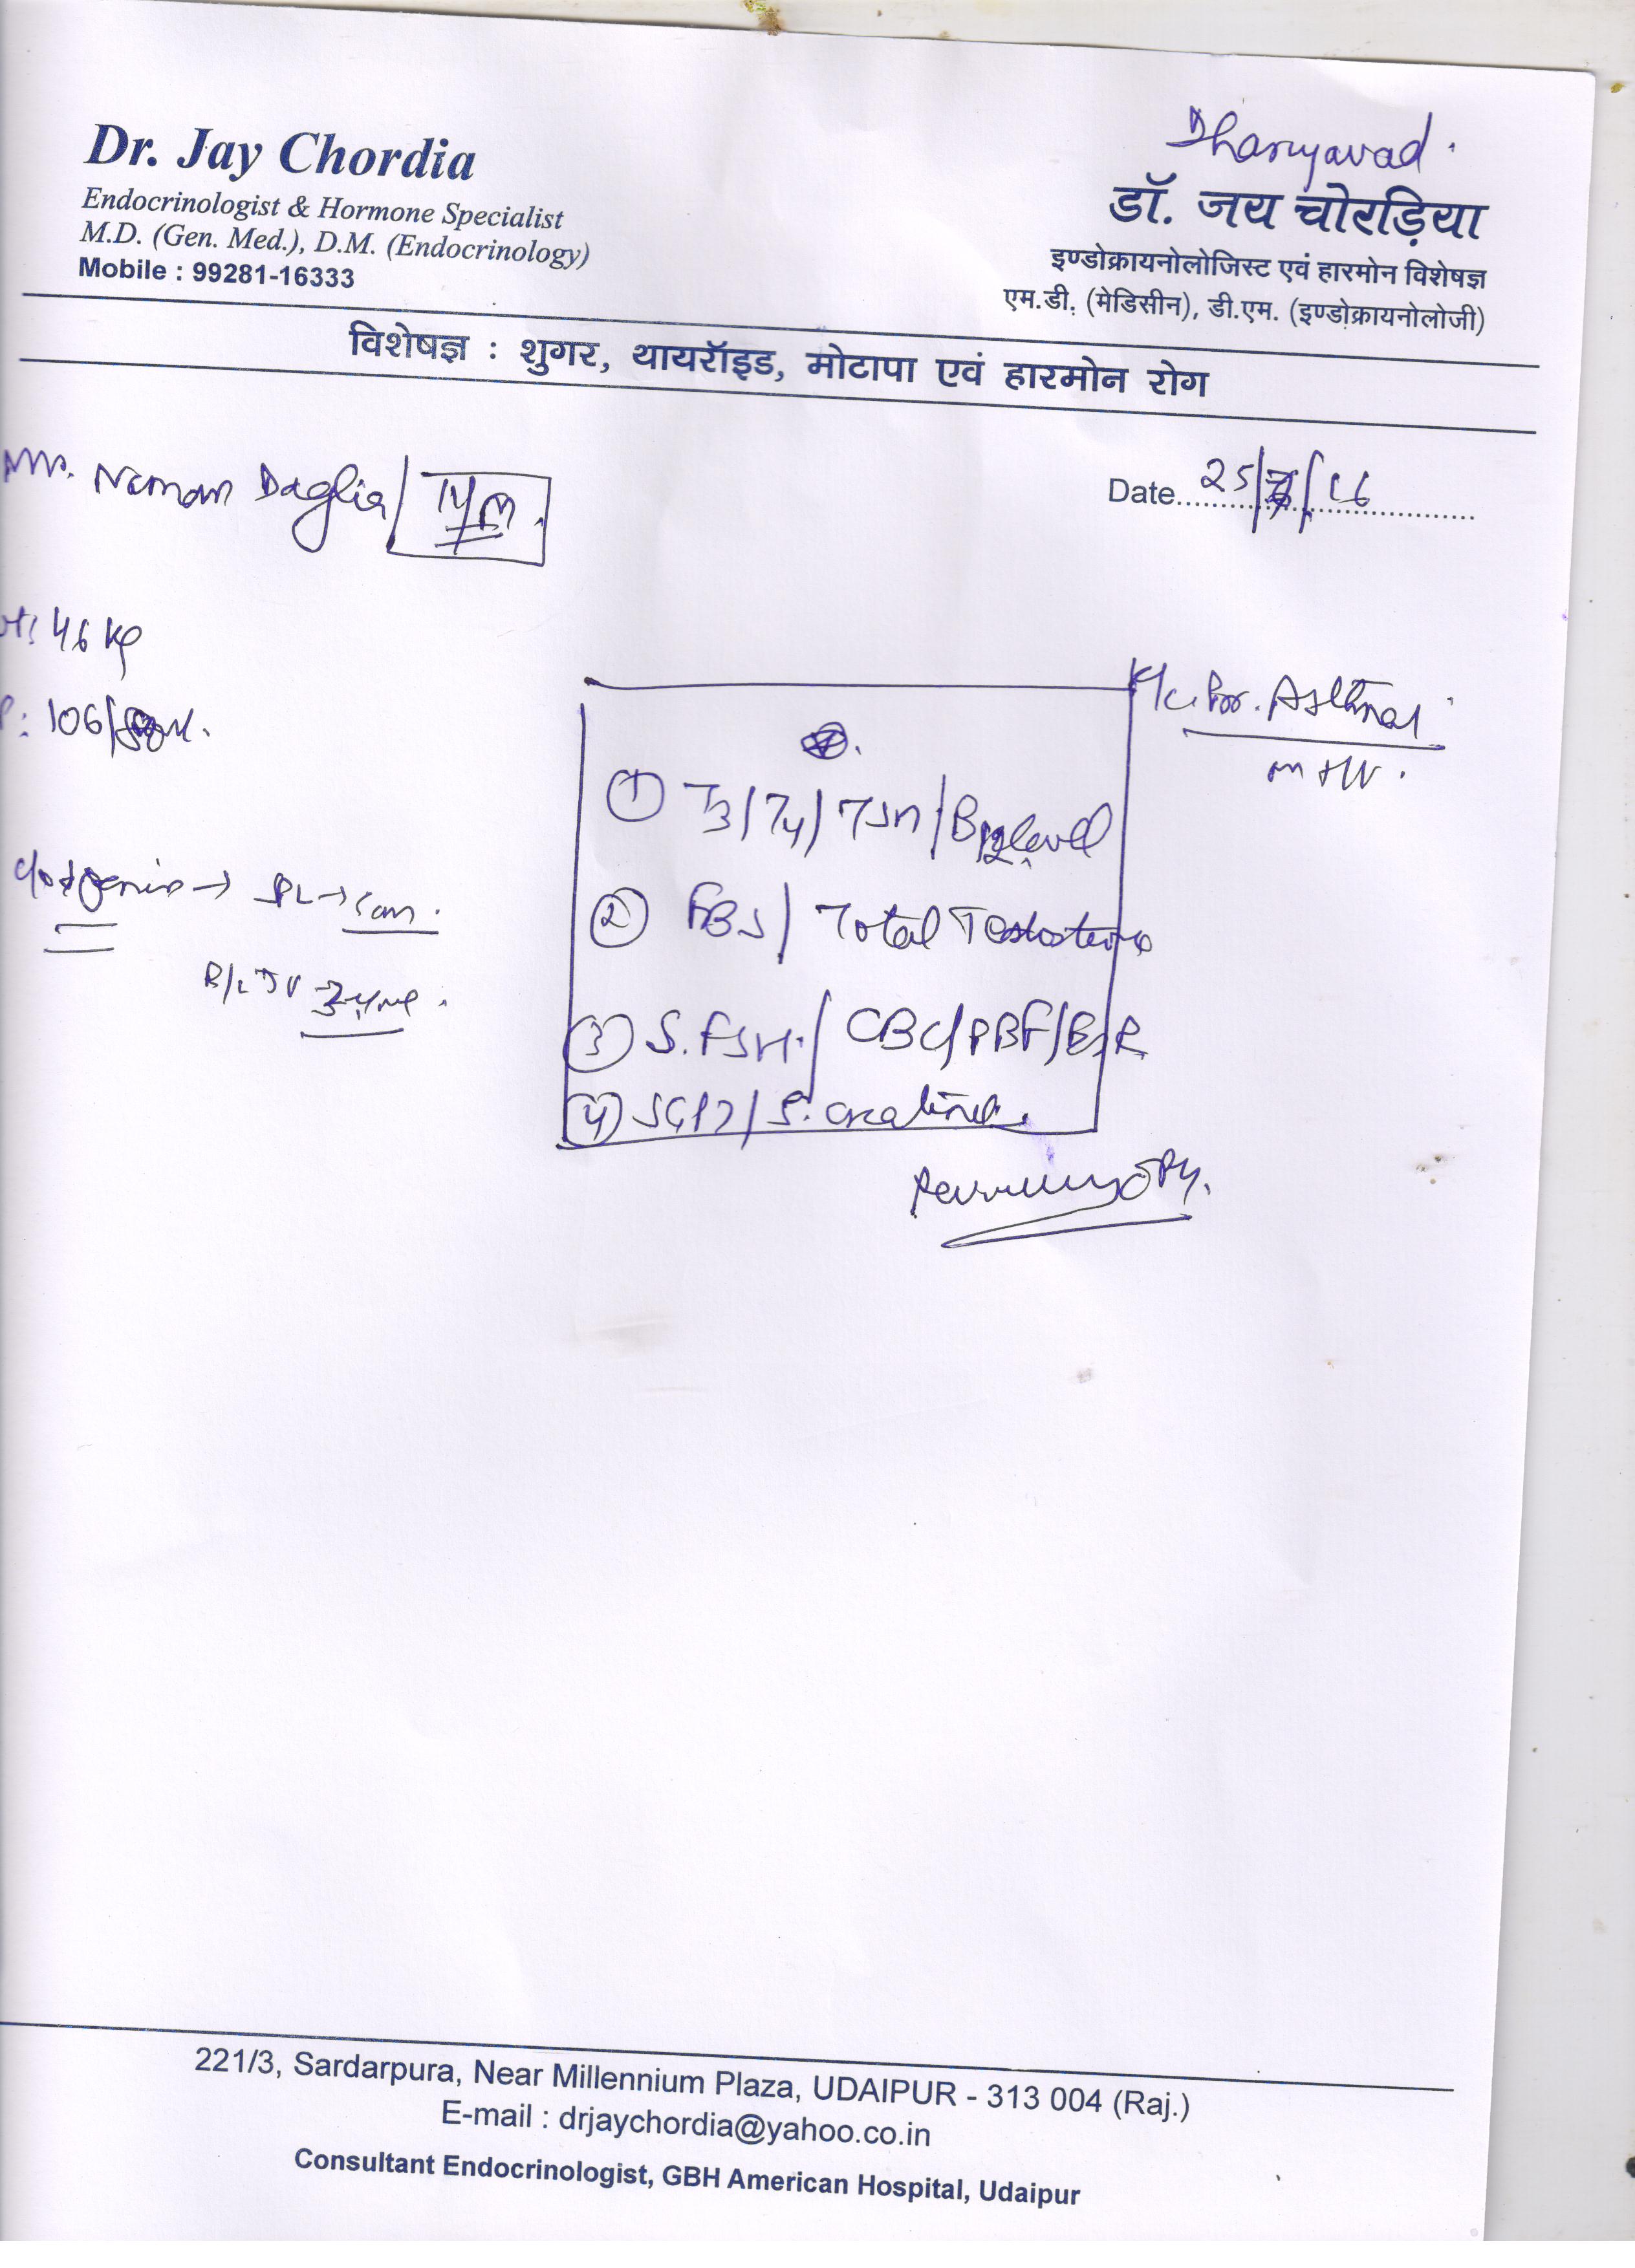 Dharyavad.
Dr. Jay Chordia
Endocrinologist & Hormone Specialist
M.D. (Gen. Med.), D.M. (Endocrinology)
Mobile : 99281-16333
डॉ. जय चोरड़िया
इण्डोक्रायनोलोजिस्ट एवं हारमोन विशेषज्ञ
एम.डी. (मेडिसीन), डी.एम. (इण्डोक्रायनोलोजी)
विशेषज्ञ : शुगर, थायरॉइड, मोटापा एवं हारमोन रोग
Date 25/ /16
Naman Daglia/ 14/m.
46 kg
106/
K/c. Bro. Asthma
① T3/T4/TSH/B12 level
② FBS/ Total Testosterone
③ S. FSH./ CBC/PBF/ESR
④ SGPT/ S. creatinine.
221/3, Sardarpura, Near Millennium Plaza, UDAIPUR - 313 004 (Raj.)
E-mail : drjaychordia@yahoo.co.in
Consultant Endocrinologist, GBH American Hospital, Udaipur